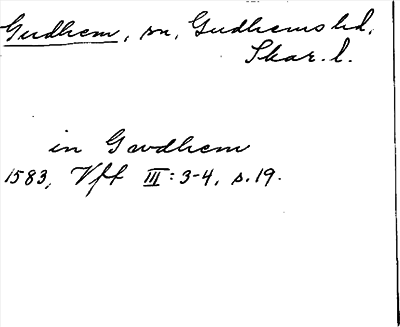 Gudhem, sn, Gudhems hd,
Skar. l.
in Gwdhem
1583, Vft III: 3-4, s. 19.